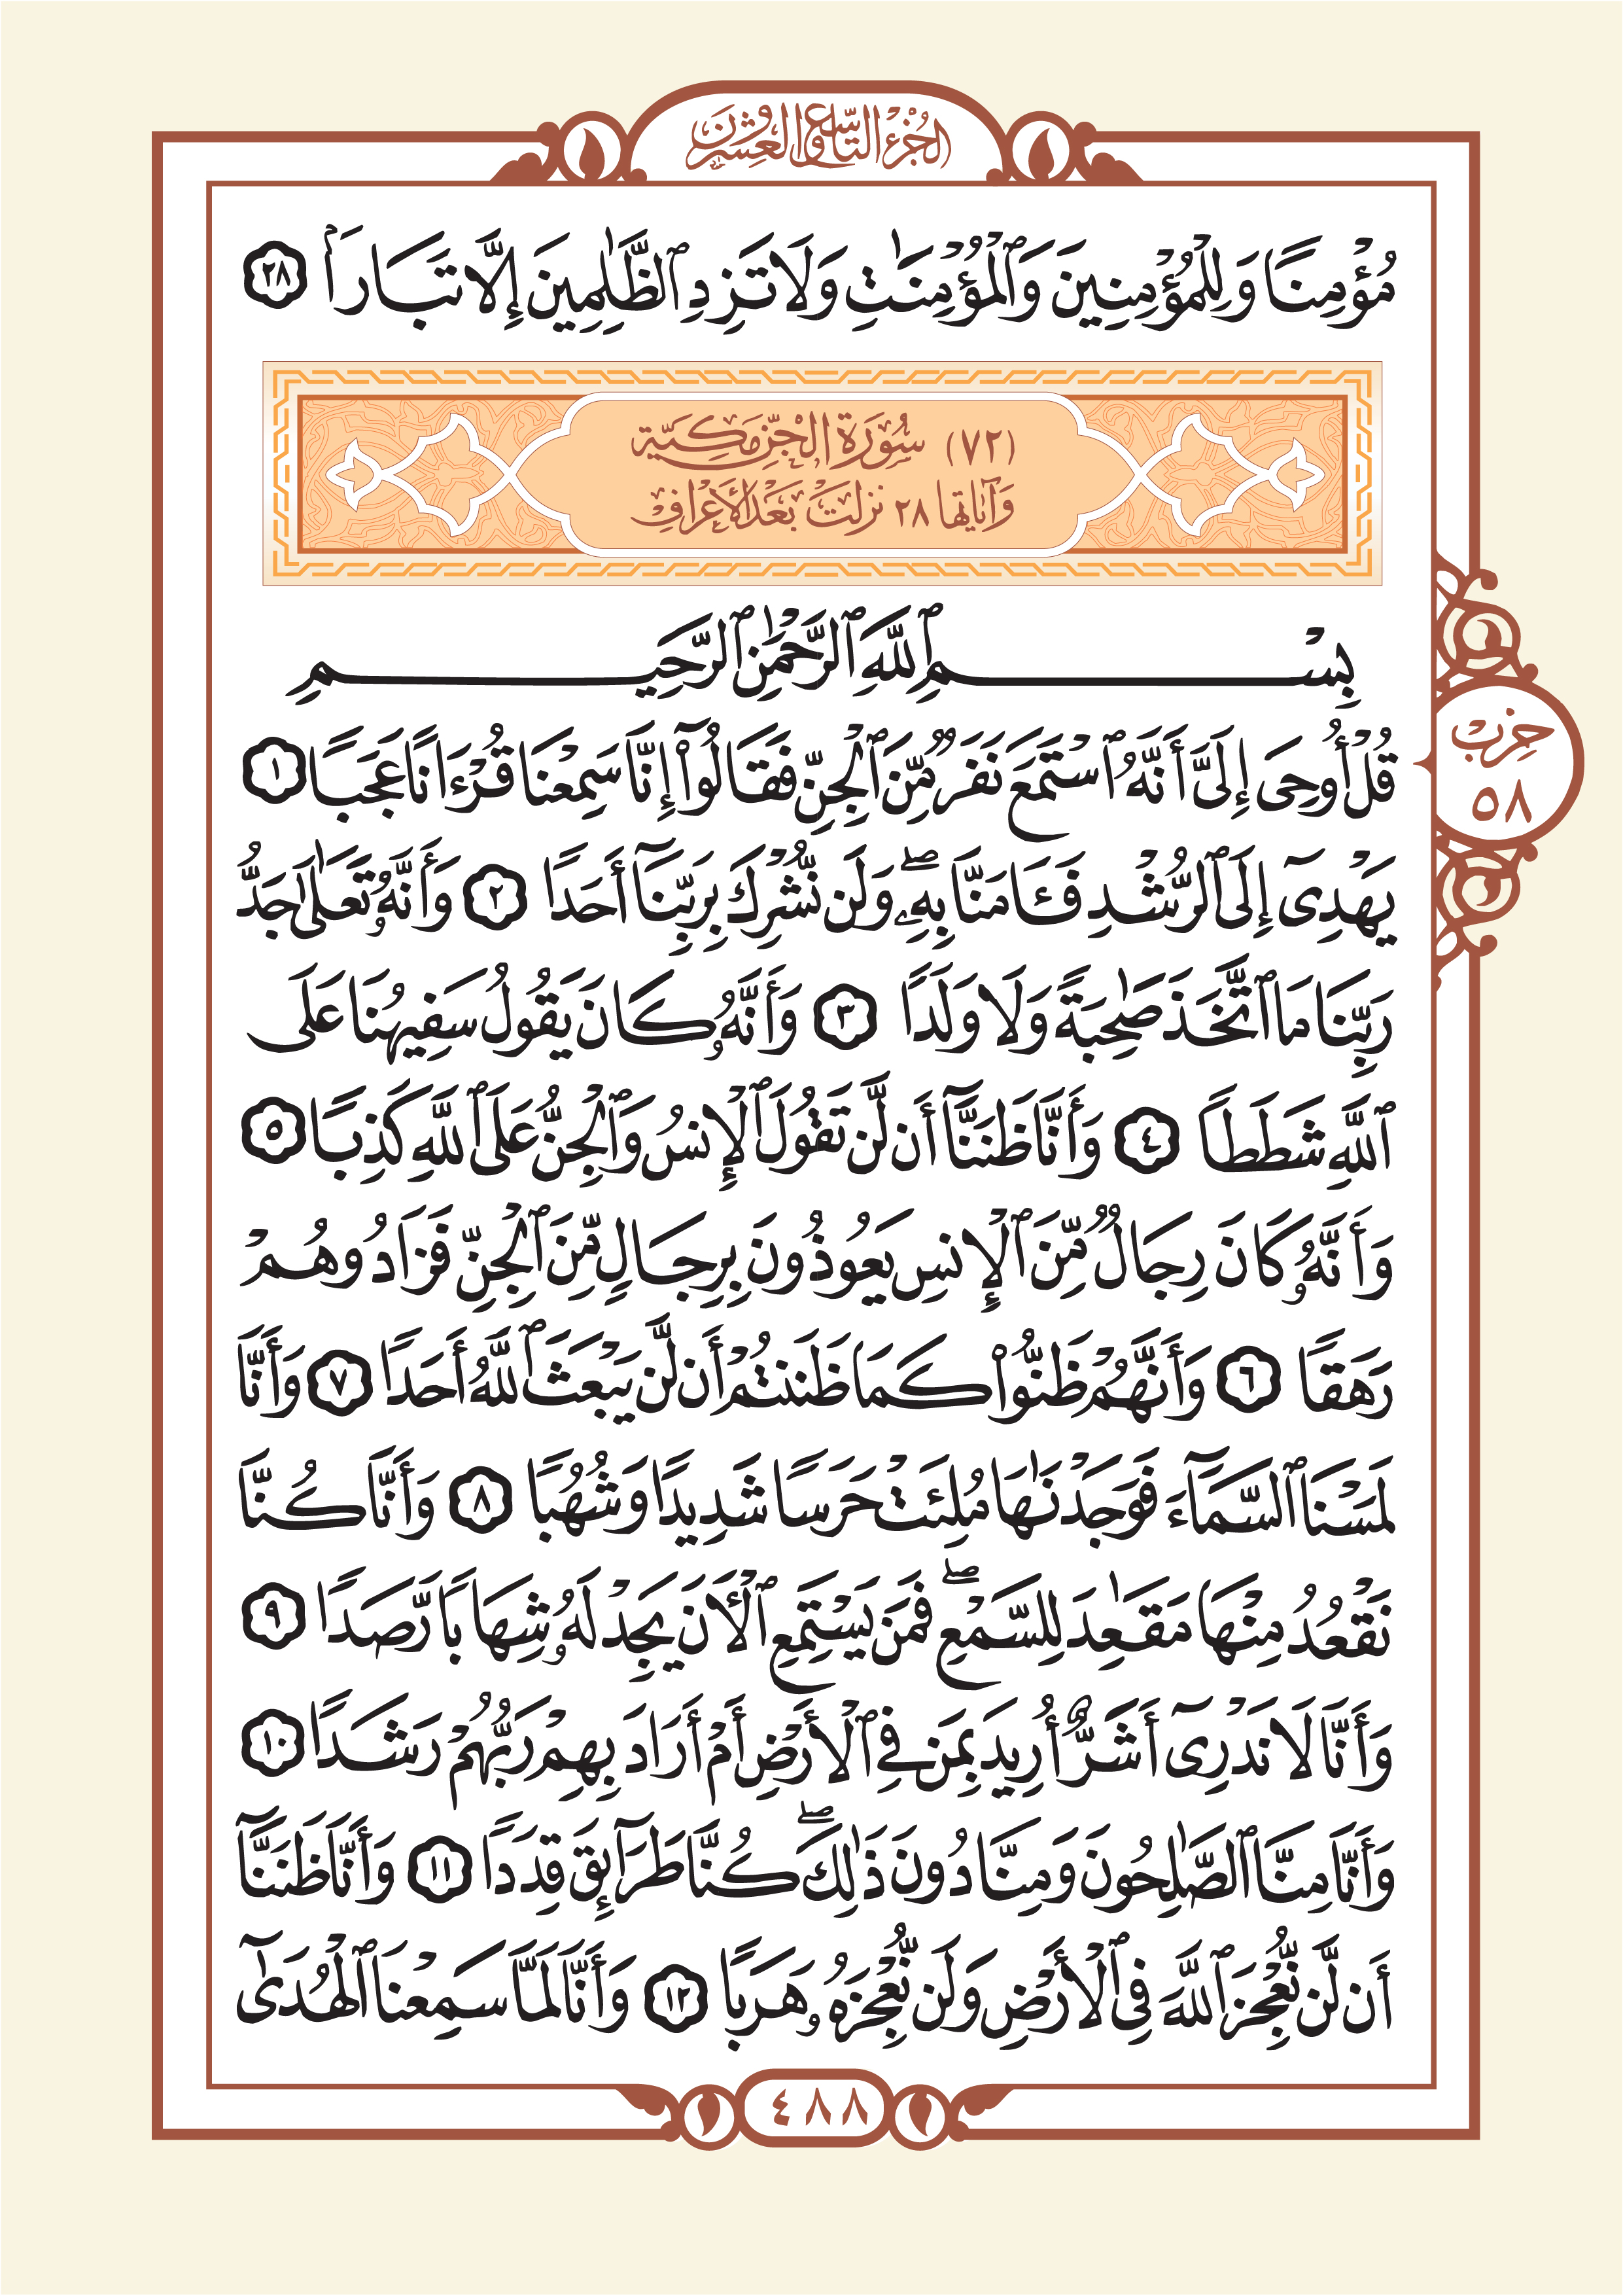 الجزء التاسع والعشرون
مُؤْمِنًا وَلِلْمُؤْمِنِينَ وَٱلْمُؤْمِنَٰتِ وَلَا تَزِدِ ٱلظَّٰلِمِينَ إِلَّا تَبَارًۢا ٢٨
(٧٢) سُورَةُ الجِنِّ مَكِيَّة
وَآيَاتُهَا ٢٨ نَزَلَتْ بَعْدَ الأَعْرَافِ
بِسْمِ ٱللَّهِ ٱلرَّحْمَٰنِ ٱلرَّحِيمِ
قُلْ أُوحِىَ إِلَىَّ أَنَّهُ ٱسْتَمَعَ نَفَرٌ مِّنَ ٱلْجِنِّ فَقَالُوٓا۟ إِنَّا سَمِعْنَا قُرْءَانًا عَجَبًا ١
يَهْدِىٓ إِلَى ٱلرُّشْدِ فَـَٔامَنَّا بِهِۦ ۖ وَلَن نُّشْرِكَ بِرَبِّنَآ أَحَدًا ٢ وَأَنَّهُۥ تَعَٰلَىٰ جَدُّ
رَبِّنَا مَا ٱتَّخَذَ صَٰحِبَةً وَلَا وَلَدًا ٣ وَأَنَّهُۥ كَانَ يَقُولُ سَفِيهُنَا عَلَى
ٱللَّهِ شَطَطًا ٤ وَأَنَّا ظَنَنَّآ أَن لَّن تَقُولَ ٱلْإِنسُ وَٱلْجِنُّ عَلَى ٱللَّهِ كَذِبًا ٥
وَأَنَّهُۥ كَانَ رِجَالٌ مِّنَ ٱلْإِنسِ يَعُوذُونَ بِرِجَالٍ مِّنَ ٱلْجِنِّ فَزَادُوهُمْ
رَهَقًا ٦ وَأَنَّهُمْ ظَنُّوا۟ كَمَا ظَنَنتُمْ أَن لَّن يَبْعَثَ ٱللَّهُ أَحَدًا ٧ وَأَنَّا
لَمَسْنَا ٱلسَّمَآءَ فَوَجَدْنَٰهَا مُلِئَتْ حَرَسًا شَدِيدًا وَشُهُبًا ٨ وَأَنَّا كُنَّا
نَقْعُدُ مِنْهَا مَقَٰعِدَ لِلسَّمْعِ ۖ فَمَن يَسْتَمِعِ ٱلْأَنَ يَجِدْ لَهُۥ شِهَابًا رَّصَدًا ٩
وَأَنَّا لَا نَدْرِىٓ أَشَرٌّ أُرِيدَ بِمَن فِى ٱلْأَرْضِ أَمْ أَرَادَ بِهِمْ رَبُّهُمْ رَشَدًا ١٠
وَأَنَّا مِنَّا ٱلصَّٰلِحُونَ وَمِنَّا دُونَ ذَٰلِكَ ۖ كُنَّا طَرَآئِقَ قِدَدًا ١١ وَأَنَّا ظَنَنَّآ
أَن لَّن نُّعْجِزَ ٱللَّهَ فِى ٱلْأَرْضِ وَلَن نُّعْجِزَهُۥ هَرَبًا ١٢ وَأَنَّا لَمَّا سَمِعْنَا ٱلْهُدَىٰٓ
حزب
٥٨
٤٨٨